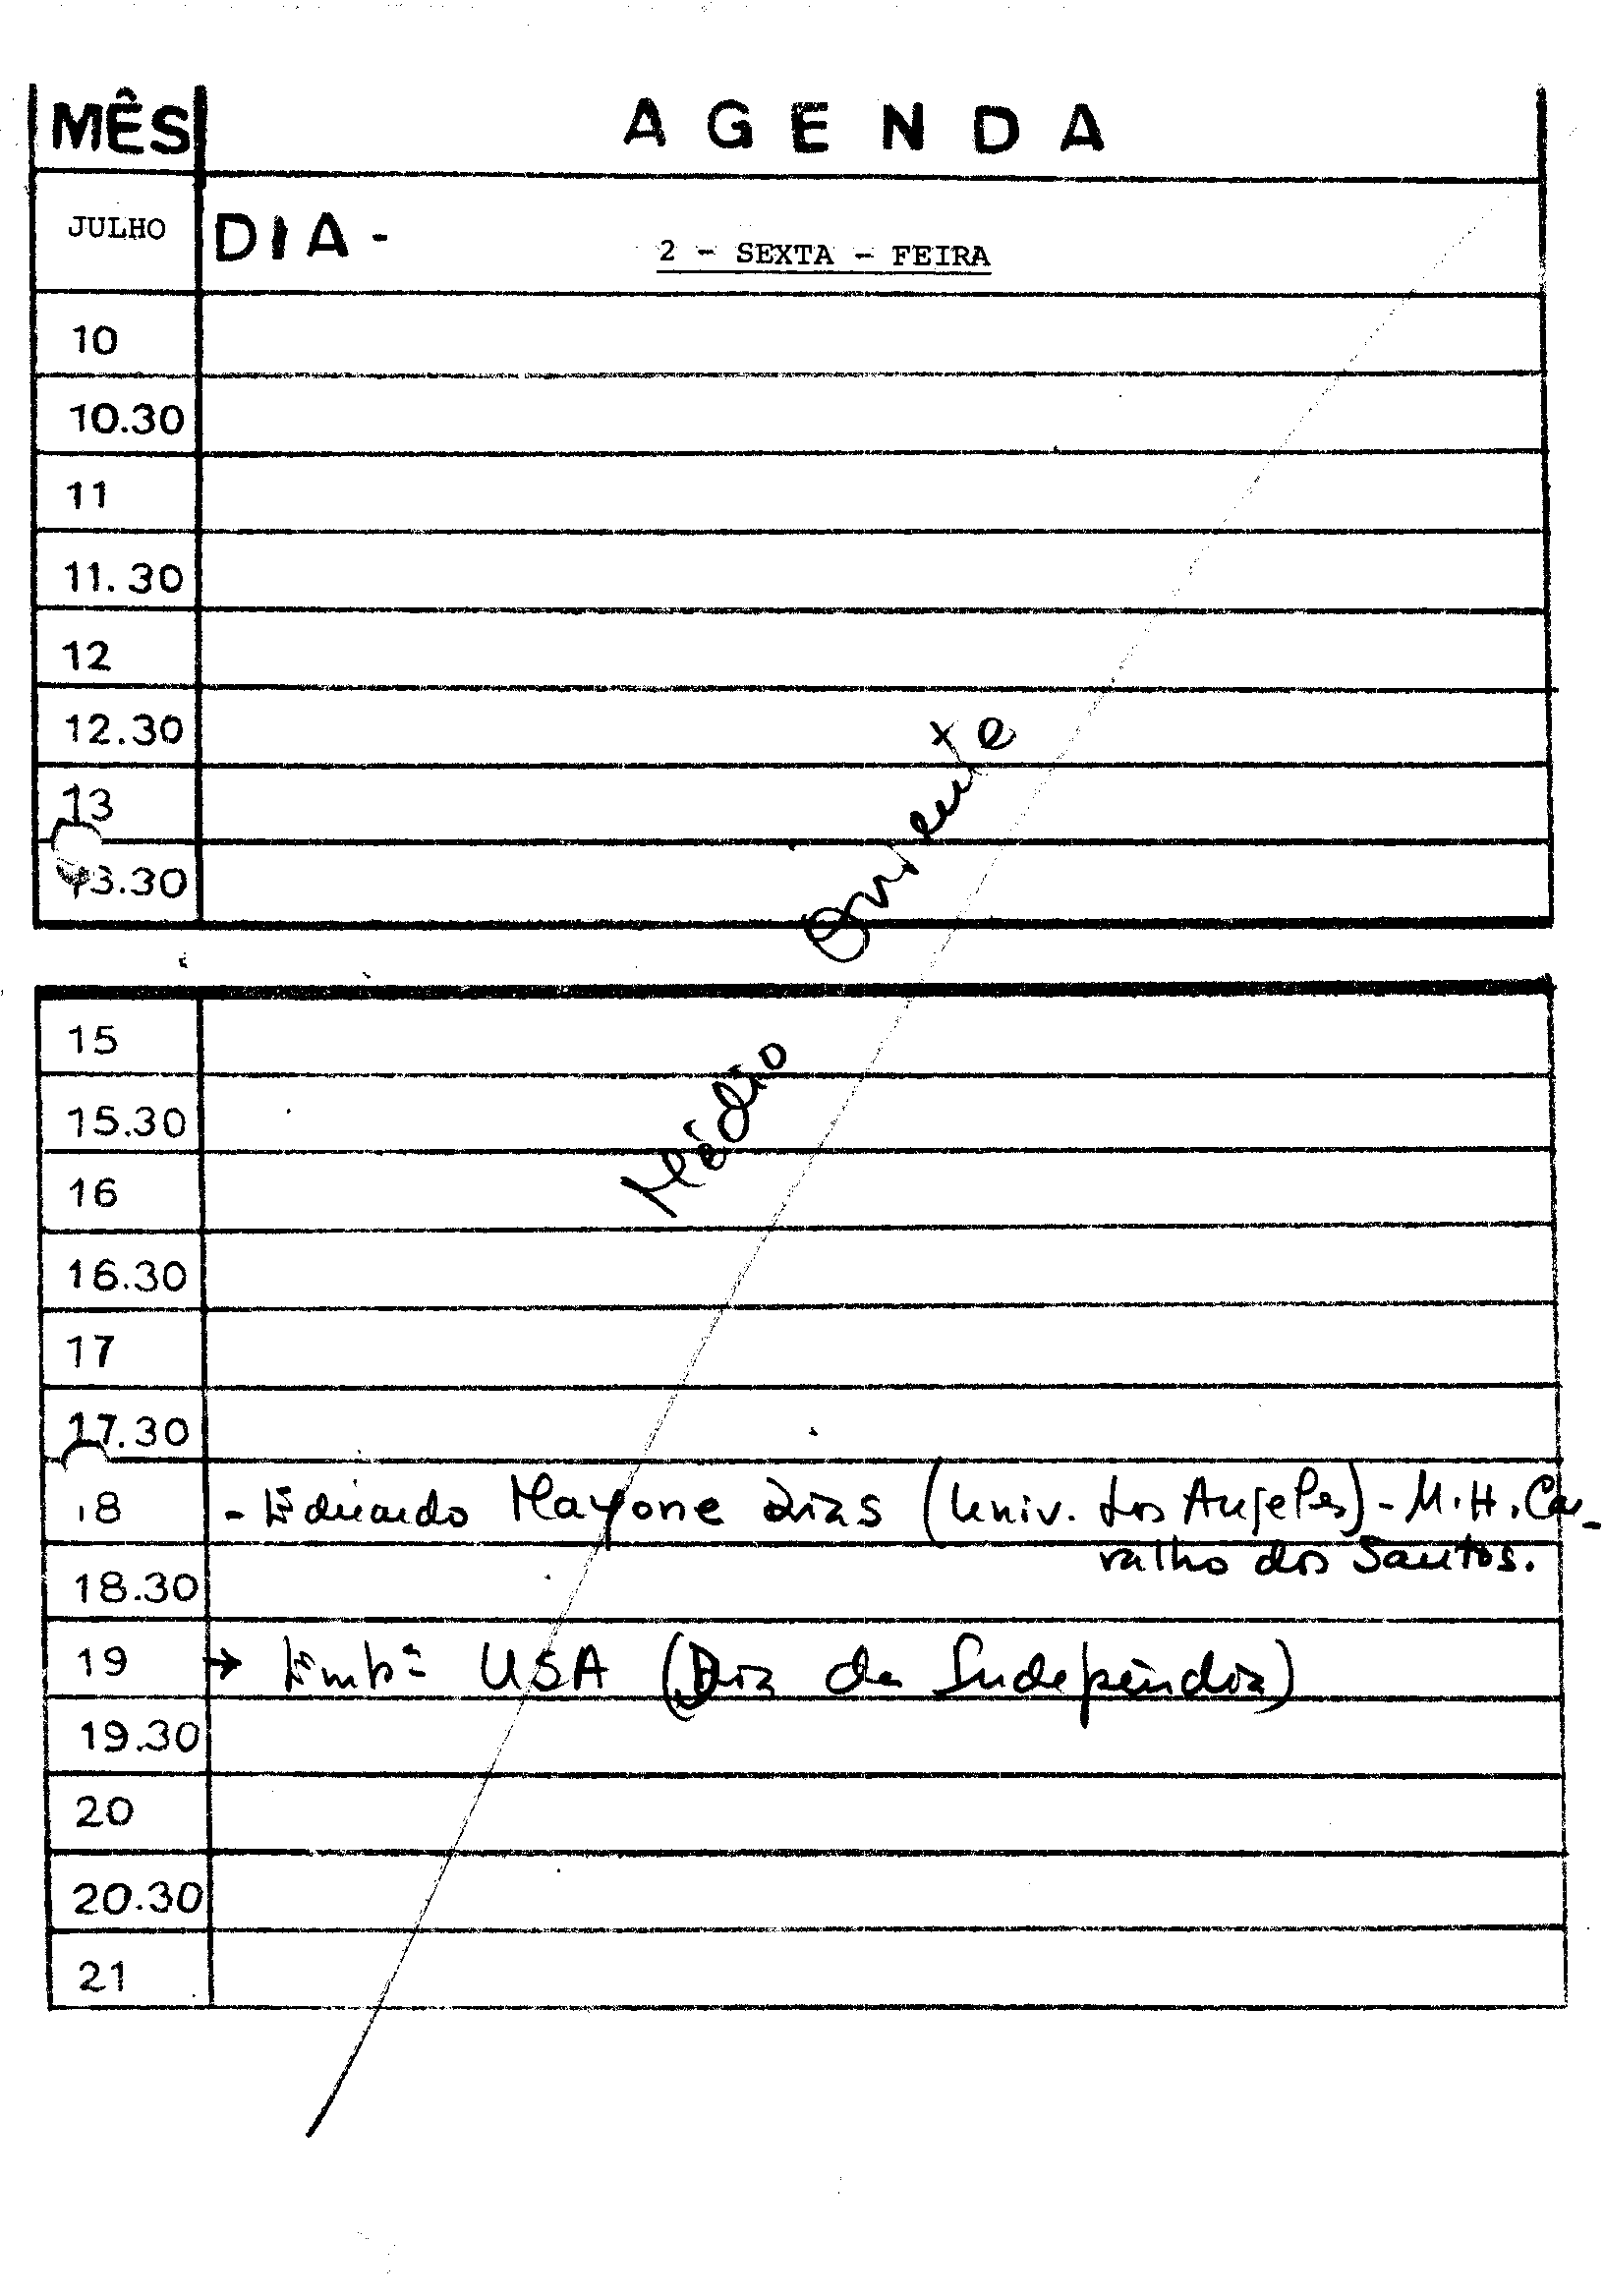 MÊS AGENDA
JULHO DIA - 2 - SEXTA - FEIRA
10
10.30
11
11.30
12
12.30
13
13.30
Médio Oriente
15
15.30
16
16.30
17
17.30
18 - Eduardo Mayone Dias (Univ. Los Angeles) - M.H. Car-
valho dos Santos.
18.30
19 → Embª USA (Dia da Indepêndia)
19.30
20
20.30
21